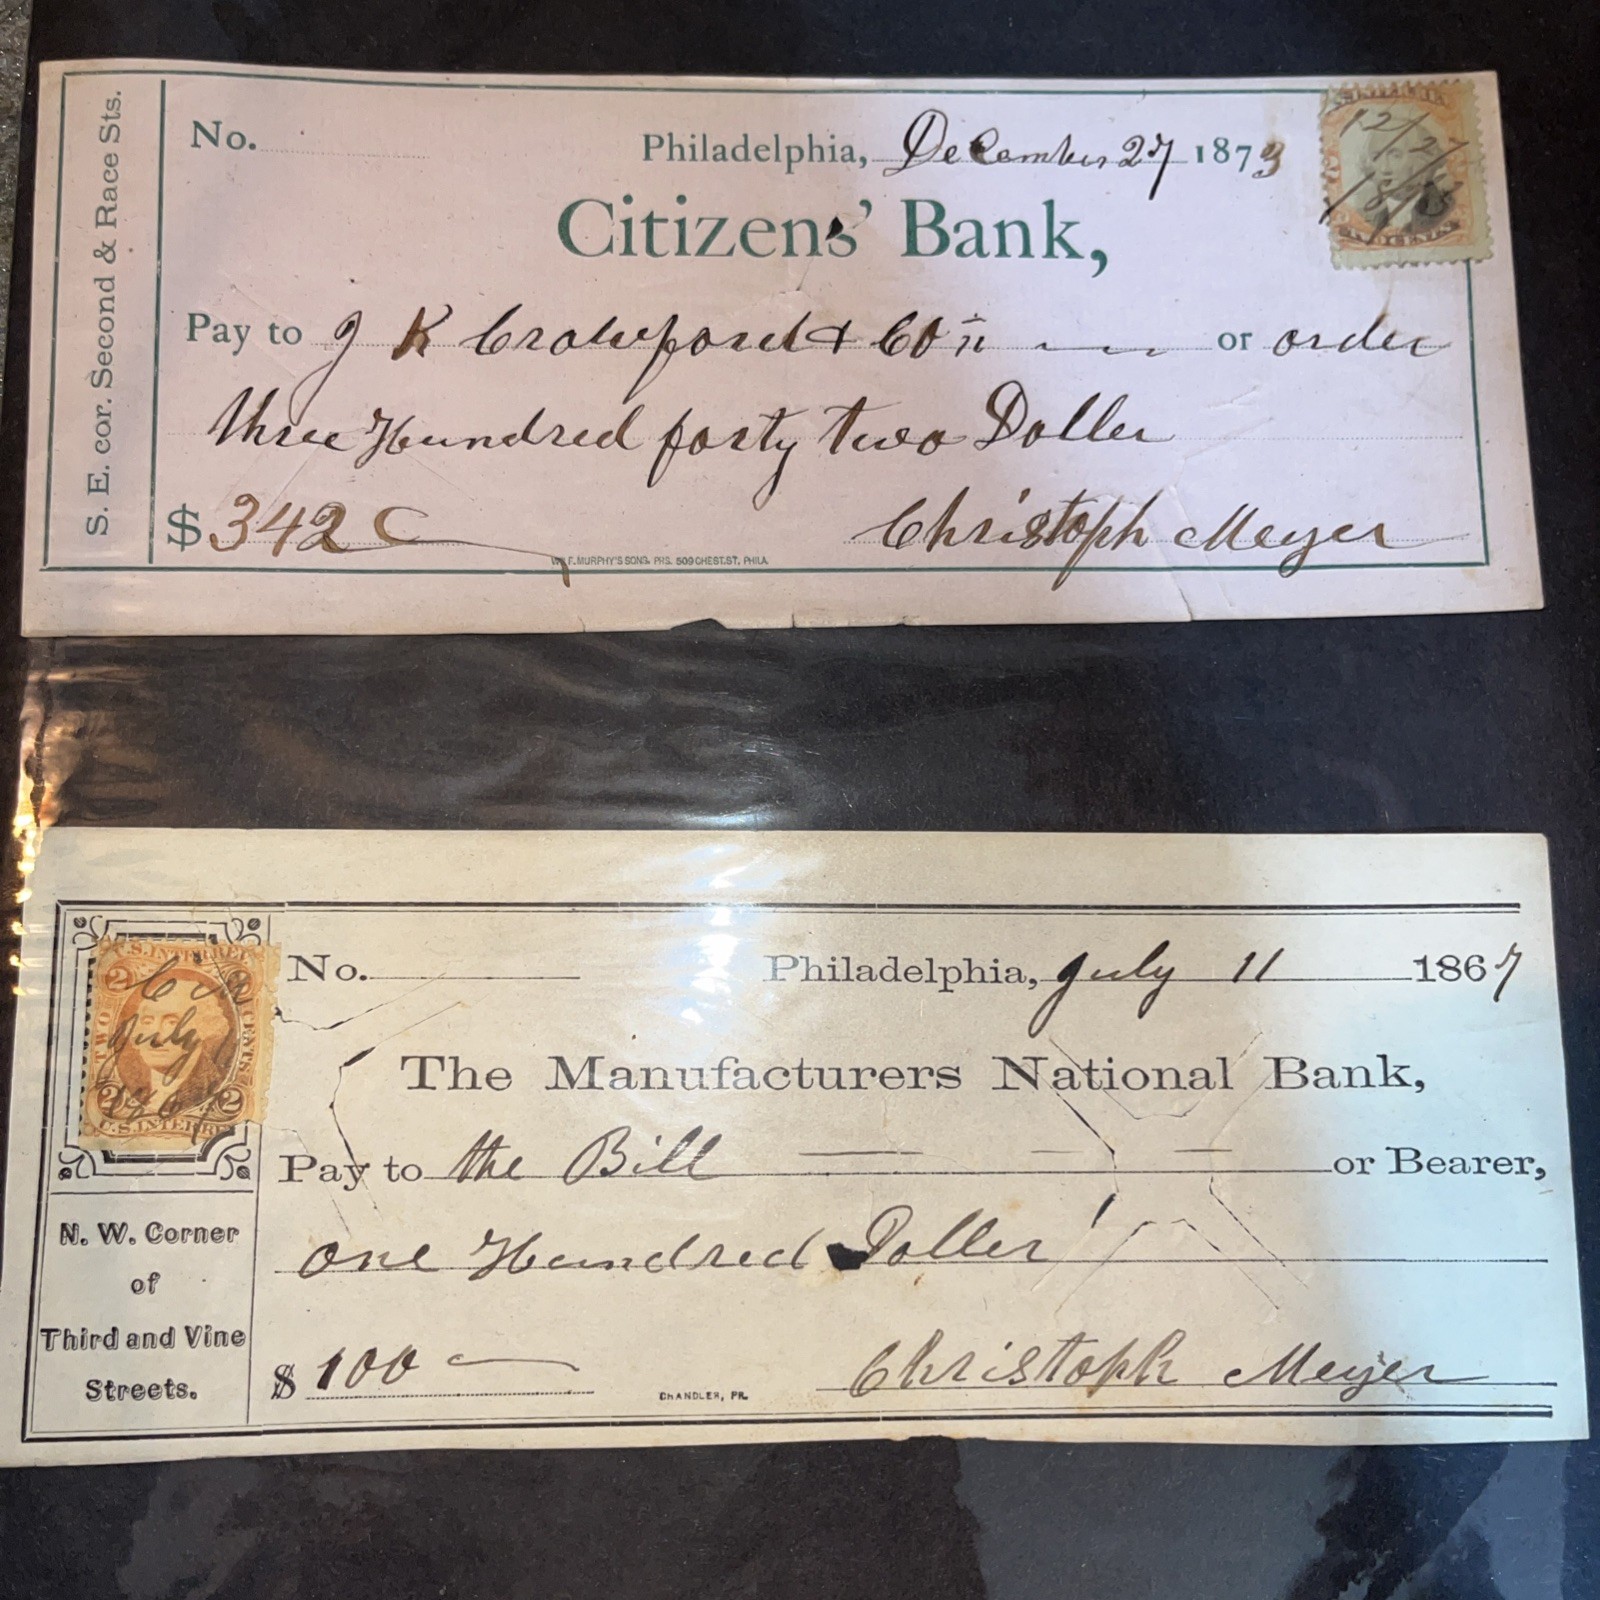 No. Philadelphia, December 27 1873
12/27
18/73
S. E. cor. Second & Race Sts.
Citizens' Bank,
Pay to J K Crawford & Co or order
three Hundred forty two Doller
$ 342
Christoph Meyer
WM. F. MURPHY'S SONS. PRS. 509 CHEST. ST, PHILA.
U.S. INTER. REV.
2 2
TWO CENTS
C M
July 11
1867
2 2
U.S. INTER. REV.
No. Philadelphia, July 11 1867
The Manufacturers National Bank,
Pay to the Bill or Bearer,
one Hundred Doller
N. W. Corner
of
Third and Vine
Streets.
$ 100
Christoph Meyer
CHANDLER, PR.